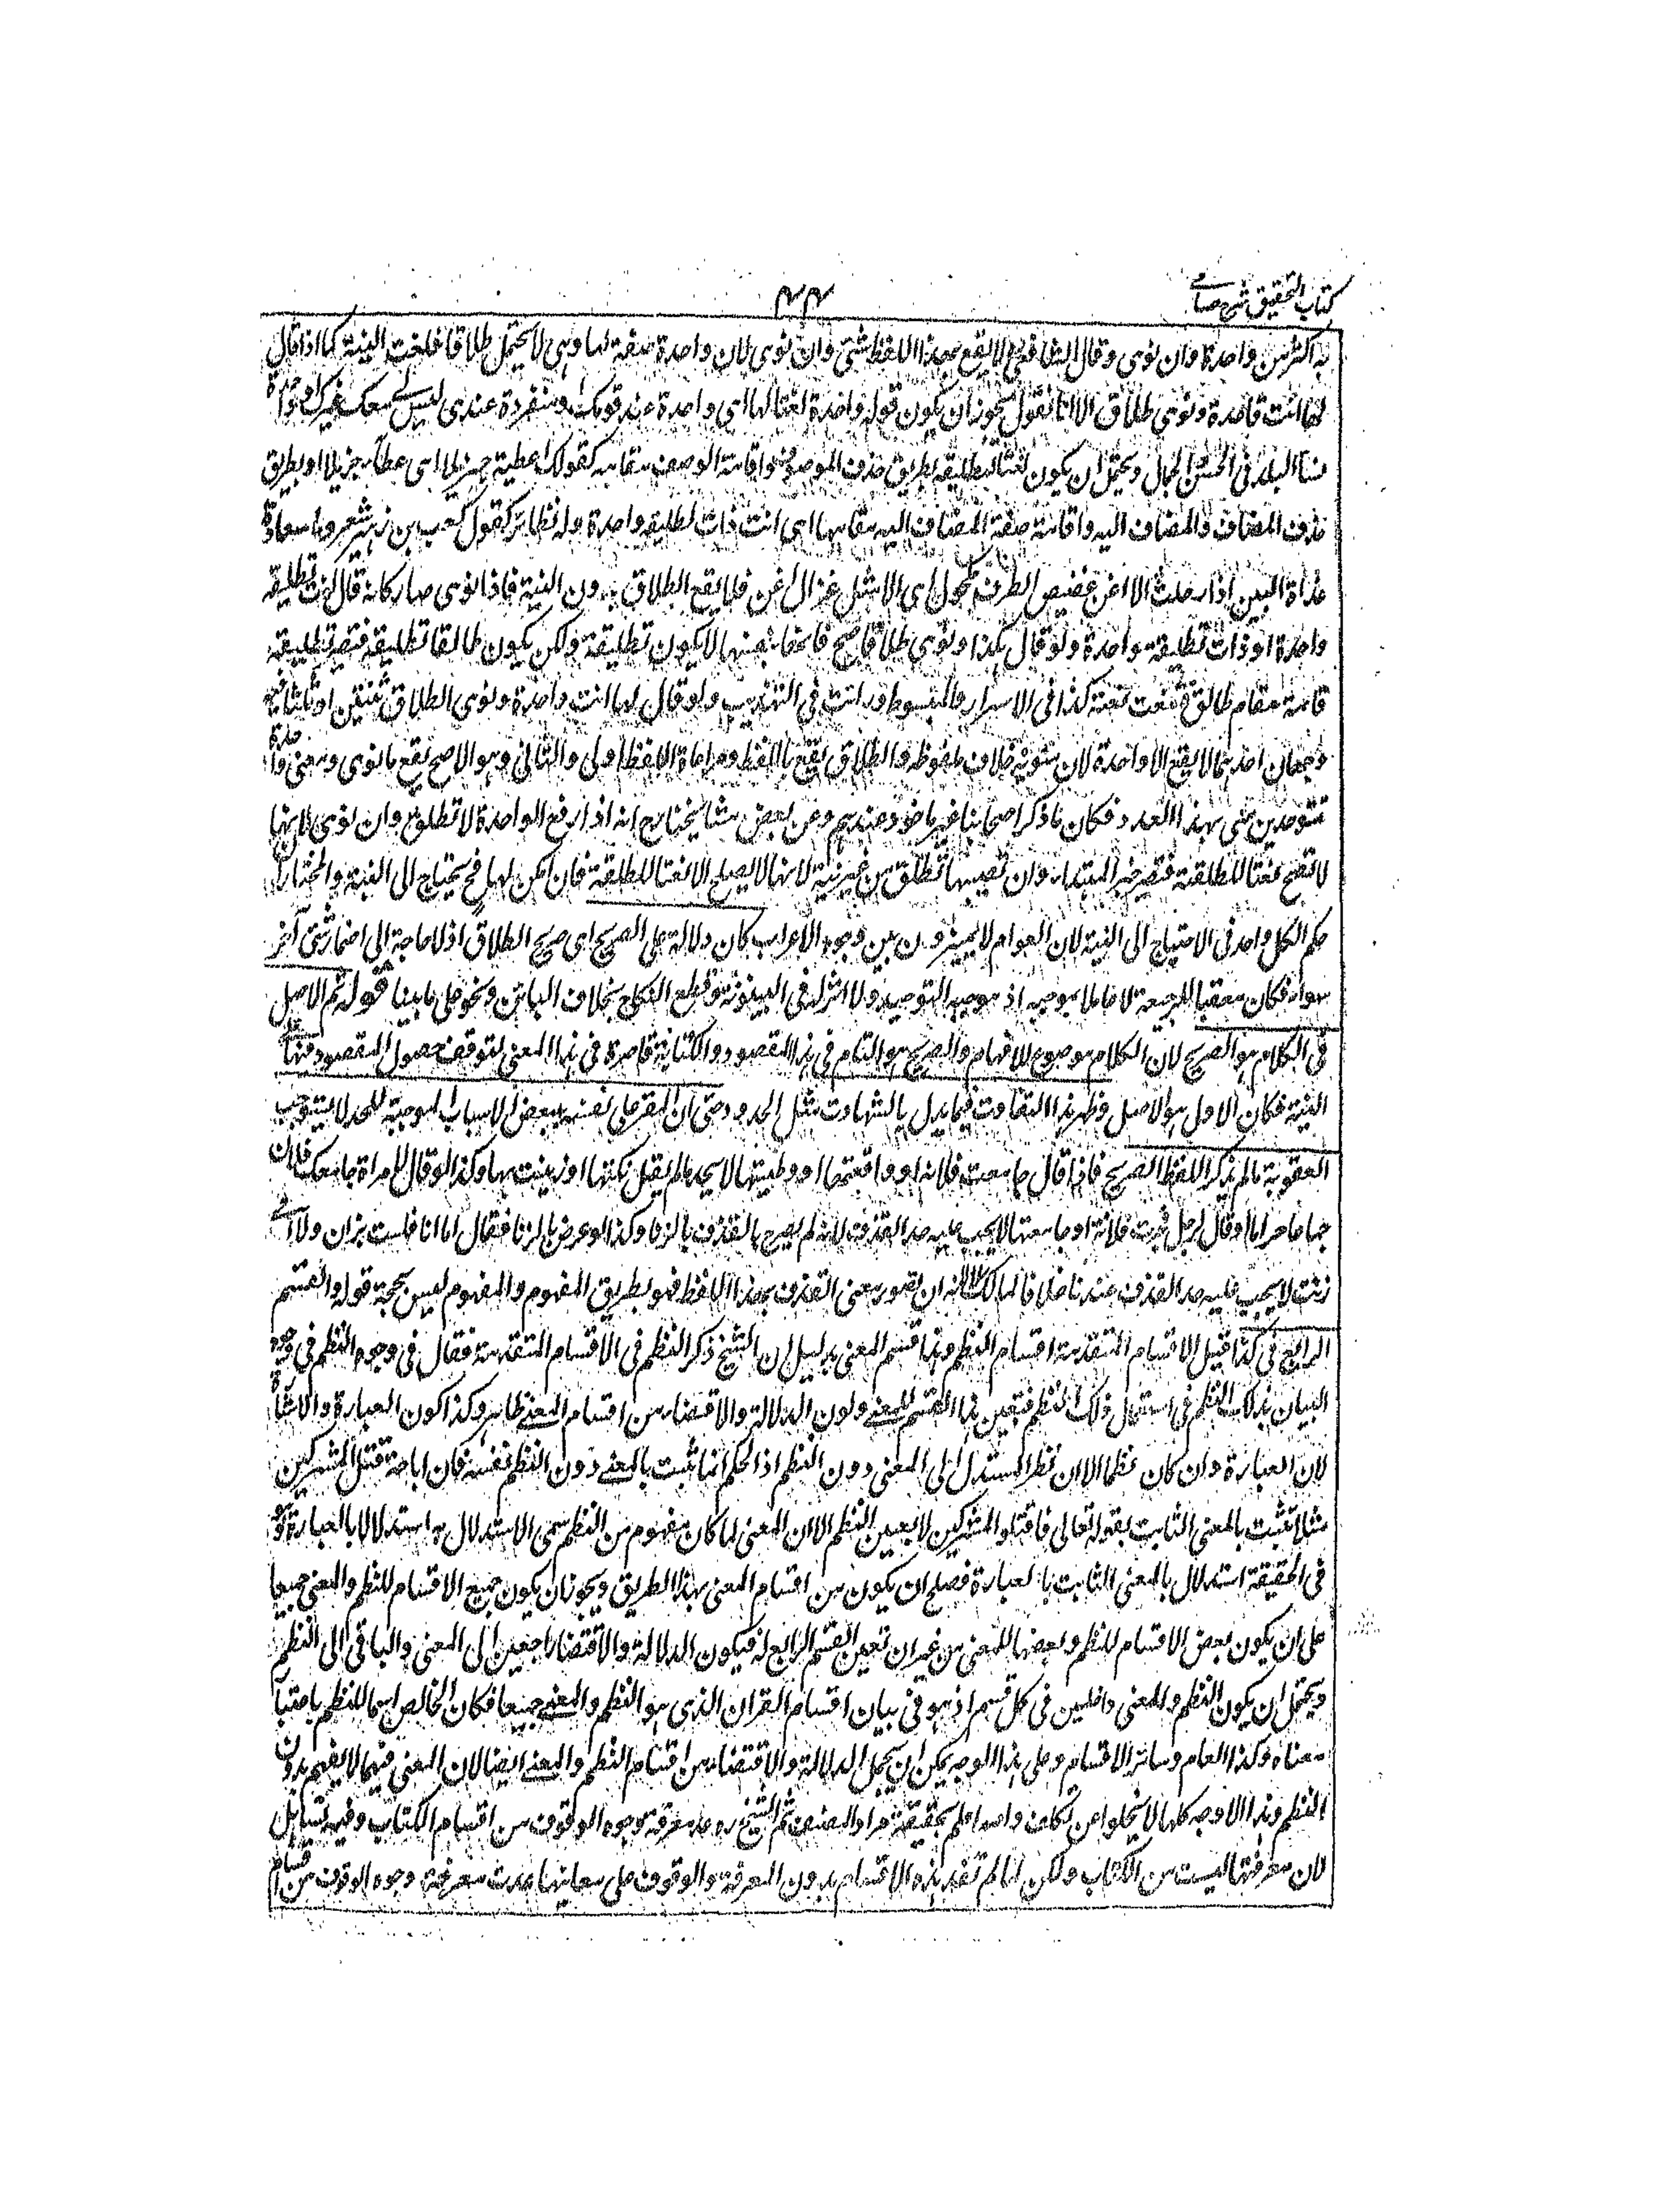 كتاب التحقيق شرح حسامى
٤٤
به اكثر من واحدة وان نوى وقال الشافعى لا يقع بهذا اللفظ شئ وان نوى لان واحدة صفة لها وهى لا تحتمل طلاقا فلغت النية كما اذا قال
لها انت قاعدة ونوى طلاق الا انا نقول يجوز ان يكون قوله واحدة نعتا لها اى واحدة عند قومك ومنفردة عندى ليس لى معك غيرك او واحدة
نساء البلد فى الحسن والجمال ويحتمل ان يكون نعتا لتطليقة بطريق حذف الموصوف واقامة الوصف مقامه كقولك اعطيته جزيلا اى عطاء جزيلا او بطريق
حذف المضاف والمضاف اليه واقامة صفة المضاف اليه مقامها اى انت ذات تطليقة واحدة وله نظائر كقول كعب بن زهير شعر وما سعاد
غداة البين اذ رحلت الا اغن غضيض الطرف مكحول اى الا مثل غزال اغن فلا يقع الطلاق بدون النية فاذا نوى صار كانه قال انت تطليقة
واحدة او ذات تطليقة واحدة ولو قال هكذا ونوى طلاقا صح فانها بعينها لا يكون تطليقة ولكن يكون طالقا تطليقة فتصير تطليقة
قائمة مقام طالق فتقع نعته كذا فى الاسرار والمبسوط ورايت فى التهذيب ولو قال لها انت واحدة ونوى الطلاق ثنتين او ثلثا فيه
وجهان احدهما لا يقع الا واحدة لان منويه خلاف ملفوظه والطلاق يقع باللفظ ومراعاة اللفظ اولى والثانى وهو الاصح يقع ما نوى ومعنى واحدة
تتوحدين منى بهذا العدد فكان ما ذكر اصحابنا غير ماخوذ عندهم وعن بعض مشايخنا رح انه اذا رفع الواحدة لا تطلق وان نوى لانها
لا تصح نعتا للطلقة فتصير خبر المبتداء وان نصبها تطلق من غير نية لانها لا يصلح الا نعتا للطلقة فان سكن لها فح يحتاج الى النية والمختار ان
حكم الكل واحد فى الاحتياج الى النية لان العوام لا يميزون بين وجوه الاعراب كان دلالة على الصريح اى صريح الطلاق اذ لا حاجة الى اضمار شئ آخر
سواه فكان معقبا للرجعة لا عاملا بموجبه اذ موجبه التوحيد ولا اثر له فى البينونة وقطع النكاح بخلاف البائن ونحوه على ما بينا قوله ثم الاصل
فى الكلام هو الصريح لان الكلام موضوع للافهام والصريح هو التام فى هذا المقصود والكناية قاصرة فى هذا المعنى لتوقف حصول المقصود فيها على
النية فكان الاول هو الاصل وظهر هذا التفاوت فيما يدرأ بالشبهات مثل الحدود حتى ان المقر على نفسه ببعض الاسباب الموجبة للحد لا يستوجب
العقوبة ما لم يذكر اللفظ الصريح فاذا قال جامعت فلانة او واقعتها او وطيتها لا يحد ما لم يقل نكتها او زنيت بها وكذا لو قال لامراة جامعك فلان
جماعا حراما او قال لرجل فجرت فلانة او جامعتها لا يجب عليه حد القذف لانه لم يصرح بالقذف بالزنا وكذا لو عرض بالزنا فقال اما انا فلست بزان ولا امى
زنت لا يجب عليه حد القذف عندنا خلافا لمالك لانه ان تصور معنى القذف بهذا اللفظ فهو بطريق المفهوم والمفهوم ليس بحجة قوله والقسم
الرابع فى كذا قيل الاقسام المتقدمة اقسام النظم وهذا قسم المعنى بدليل ان الشيخ ذكر النظم فى الاقسام المتقدمة فقال فى وجوه النظم فى وجوه
البيان بذلك النظم فى استعمال ذلك النظم فتعين هذا القسم للمعنى وكون الدلالة والاقتضاء من اقسام المعنى ظاهر وكذا كون العبارة والاشارة
لان العبارة وان كان نظما الا ان نظر المستدل الى المعنى دون النظم اذ الحكم انما ثبت بالمعنى دون النظم نفسه فان اباحة قتل المشركين
مثلا تثبت بالمعنى الثابت بقوله تعالى فاقتلوا المشركين لا بعين النظم الا ان المعنى لما كان مفهوم من النظم سمى الاستدلال به استدلالا بالعبارة وهو
فى الحقيقة استدلال بالمعنى الثابت بالعبارة فصلح ان يكون من اقسام المعنى بهذا الطريق ويجوز ان يكون جميع الاقسام للنظم والمعنى جميعا
على ان يكون بعض الاقسام للنظم وبعضها للمعنى من غير ان تعين القسم الرابع له فيكون الدلالة والاقتضاء راجعين الى المعنى والباقى الى النظم
ويحتمل ان يكون النظم والمعنى داخلين فى كل قسم اذ هو فى بيان اقسام القرآن الذى هو النظم والمعنى جميعا فكان الخاص اسما للنظم باعتبار
معناه وكذا العام وسائر الاقسام وعلى هذا الوجه يمكن ان يجعل الدلالة والاقتضاء من اقسام النظم والمعنى ايضا لان المعنى فيهما لا يفهم بدون
النظم وهذا الاوجه كلها لا يخلوا عن تكلف والله اعلم بحقيقة مراد المصنف ثم الشيخ ره عد معرفة وجوه الوقوف من اقسام الكتاب وفيه تساهل
لان معرفتها ليست من الكتاب ولكن لما لم تفد هذه الاقسام بدون المعرفة والوقوف على معانيها عدت معرفة وجوه الوقوف من اقسام